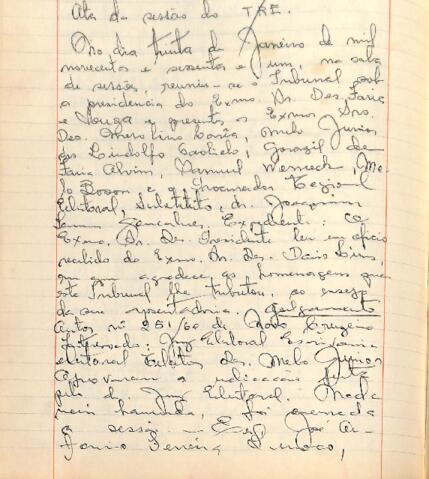 Ata da sessão do TRE.
No dia trinta de Janeiro de mil
novecentos e sessenta e um, na sala
de sessão, reuniu-se o Tribunal sob
a presidencia do Exmo. Sr. Des. Faria
e Souza e presentes os Exmos Srs.
Des. Melo Junior,
Lindolfo
Alvim, Samuel Werneck, Me-
lo Bosson, e o Procurador Regional
Eleitoral, Substituto, dr. Joaquim
Gonçalves. Expediente: O
Exmo. Sr. Des. Presidente leu um oficio
recebido do Exmo. Sr. Des. Dario Lins,
em que agradece as homenagens que
este Tribunal lhe tributou, ao ensejo
da sua aposentadoria. Julgamento
Autos nº 251/60 de Novo Cruzeiro
Interessado: Juiz Eleitoral Escrivania
eleitoral Relator des. Melo Junior
Aprovaram a indicação feita
pelo dr. Juiz Eleitoral. Nada
mais havendo, foi encerrada
a sessão. Eu, José An-
tonio Ferreira